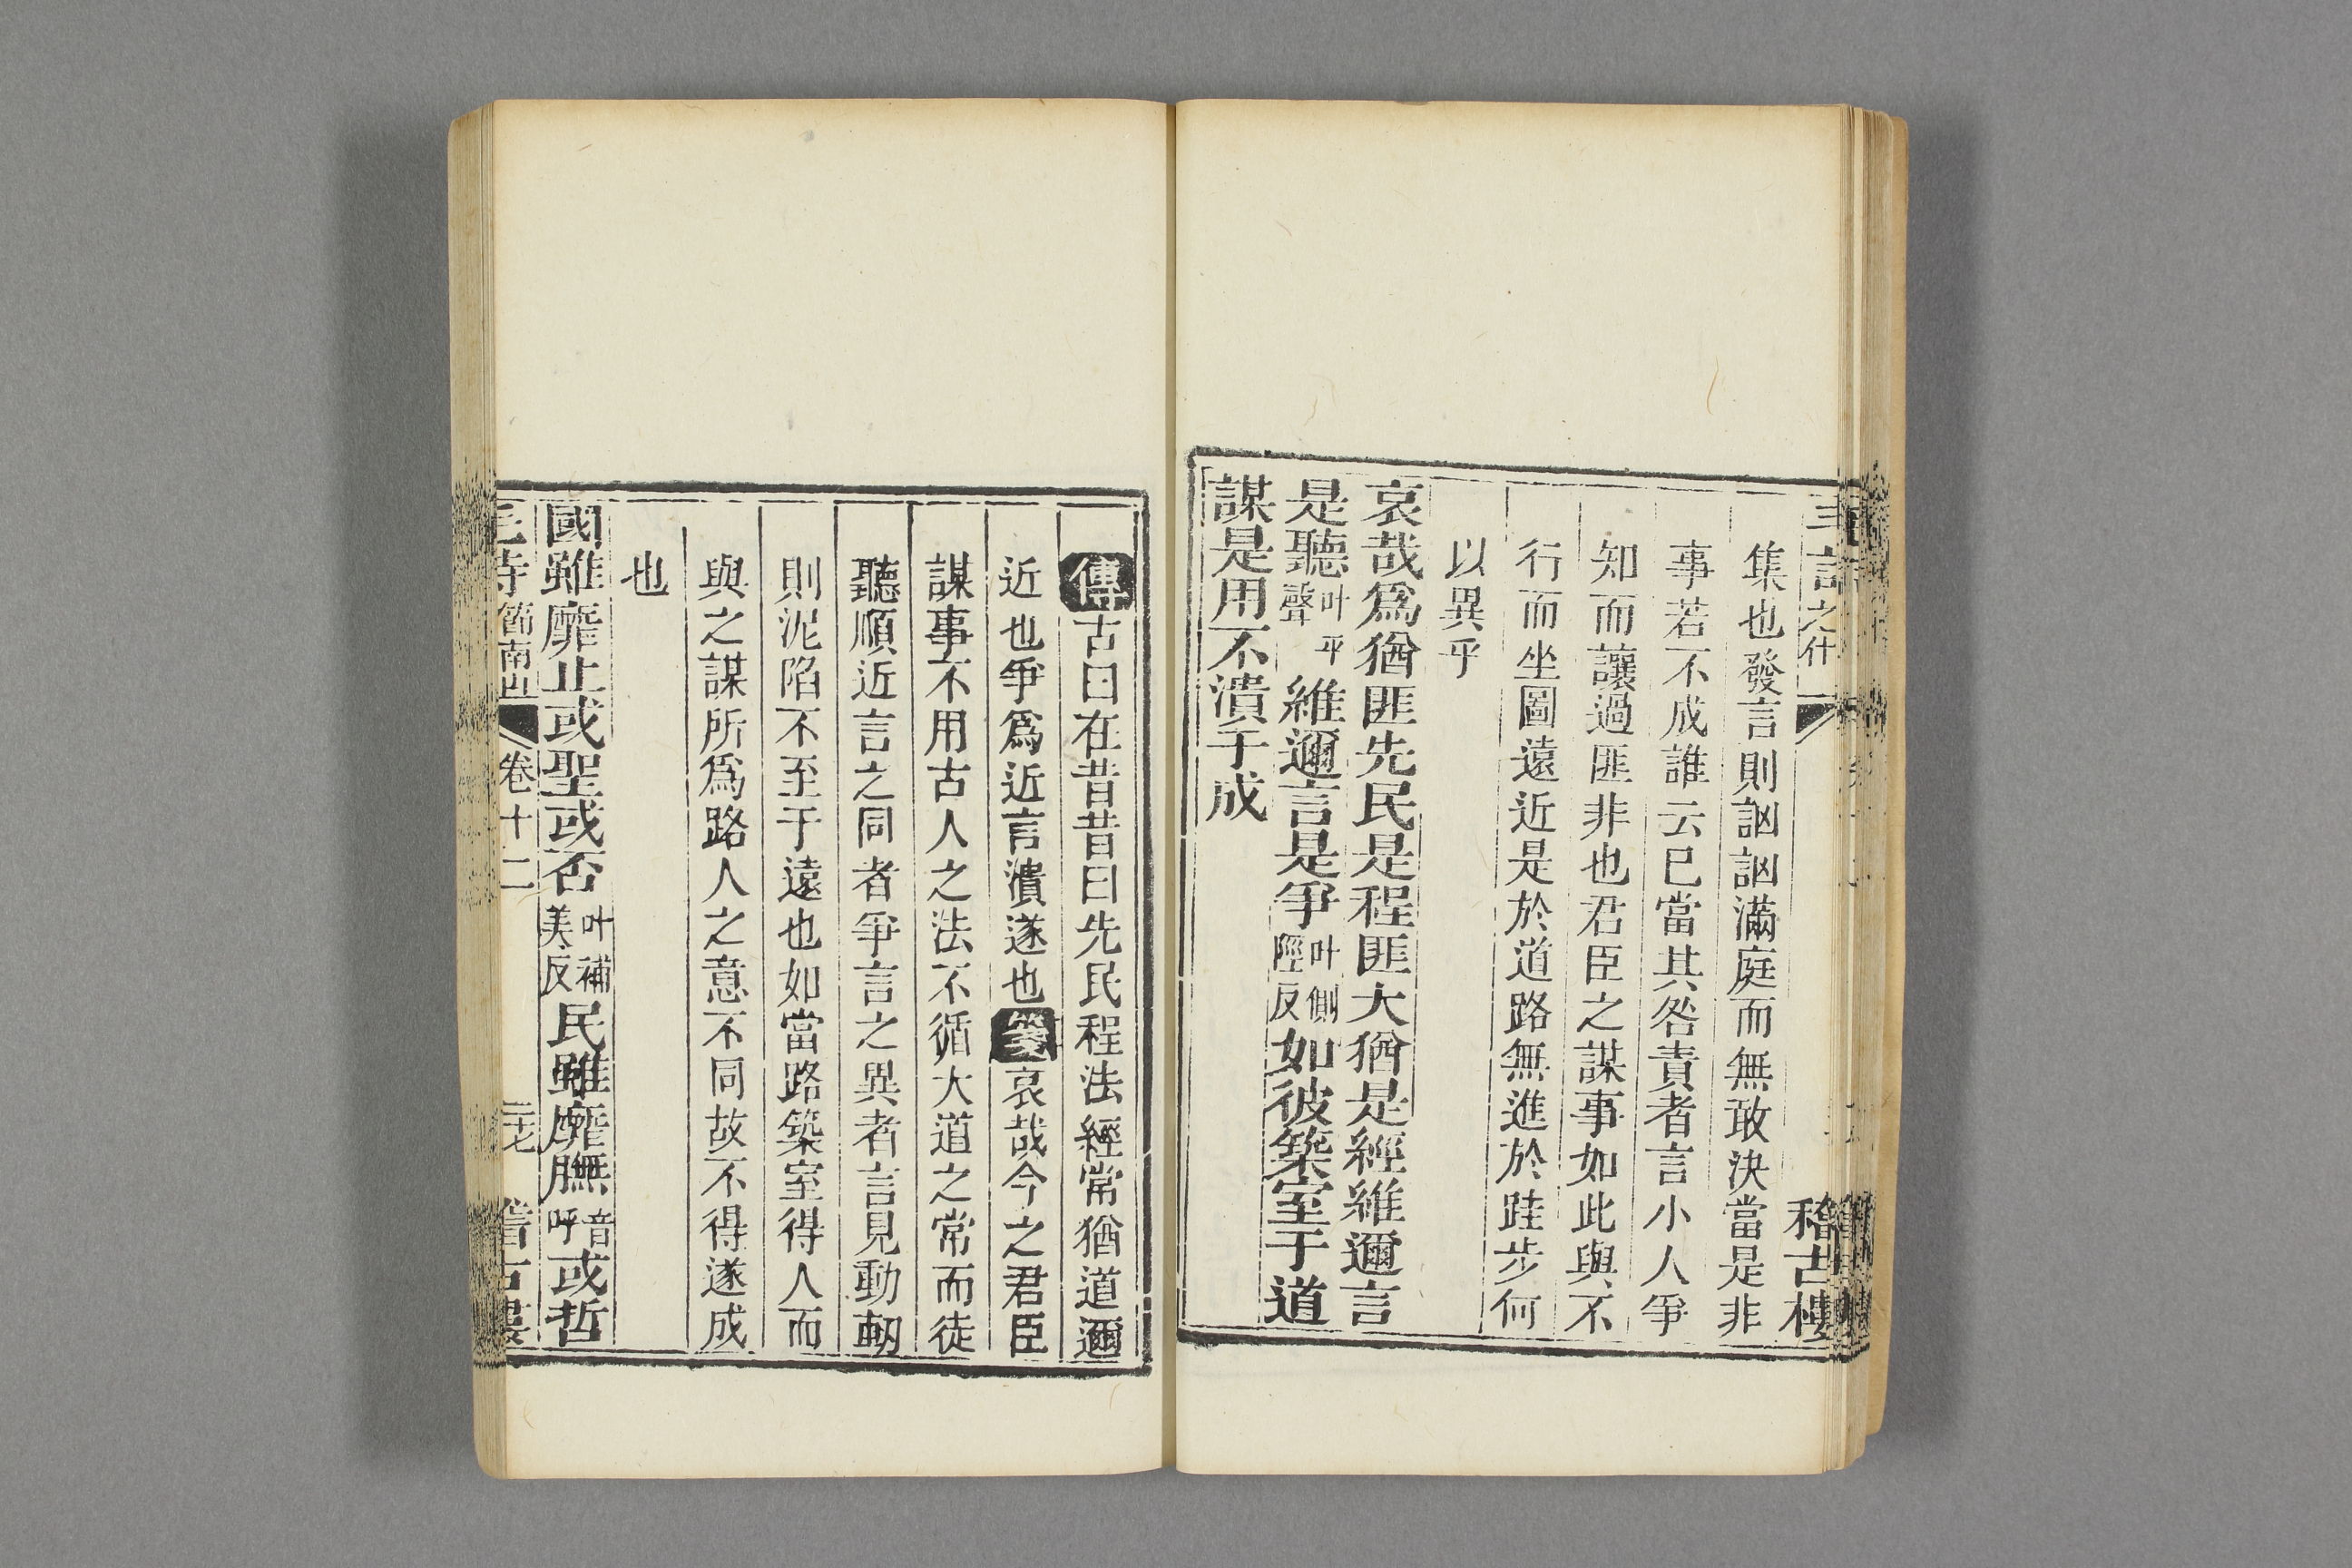 集也發言則訩訩滿庭而無敢決當是非
事若不成誰云已當其咎責者言小人爭
知而讓過匪非也君臣之謀事如此與不
行而坐圖遠近是於道路無進於跬步何
以異乎
哀哉爲猶匪先民是程匪大猶是經維邇言
是聽叶平聲維邇言是爭叶側陘反如彼築室于道
謀是用不潰于成
傳古曰在昔昔曰先民程法經常猶道邇
近也爭爲近言潰遂也箋哀哉今之君臣
謀事不用古人之法不循大道之常而徒
聽順近言之同者爭言之異者言見動軔
則泥陷不至于遠也如當路築室得人而
與之謀所爲路人之意不同故不得遂成
也
國雖靡止或聖或否叶補美反民雖靡膴音呼或哲
毛詩節南山 卷十二 二七 稽古樓